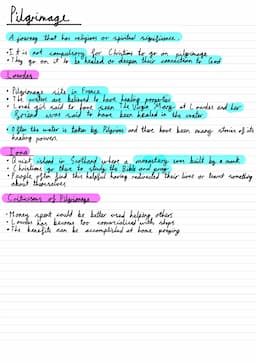 Pilgrimage
A journey that has religious or spiritual significance.
• It is not compulsory for Christians to go on pilgrimage
• They go on it to be healed or deepen their connection to God
Lourdes
• Pilgrimage site in France
• The waters are believed to have healing properties
• Local girl said to have seen the Virgin Mary at Lourdes and her
friend was said to have been healed in the water
• Often the water is taken by Pilgrims and there have been many stories of its
healing powers
Iona
• Quiet island in Scotland where a monastery was built by a monk
• Christians go there to study the Bible and pray
• People often find this helpful having redirected their lives or learnt something
about themselves
Criticisms of Pilgrimage
• Money spent could be better used helping others
• Lourdes has become too commercialised with shops
• The benefits can be accomplished at home praying